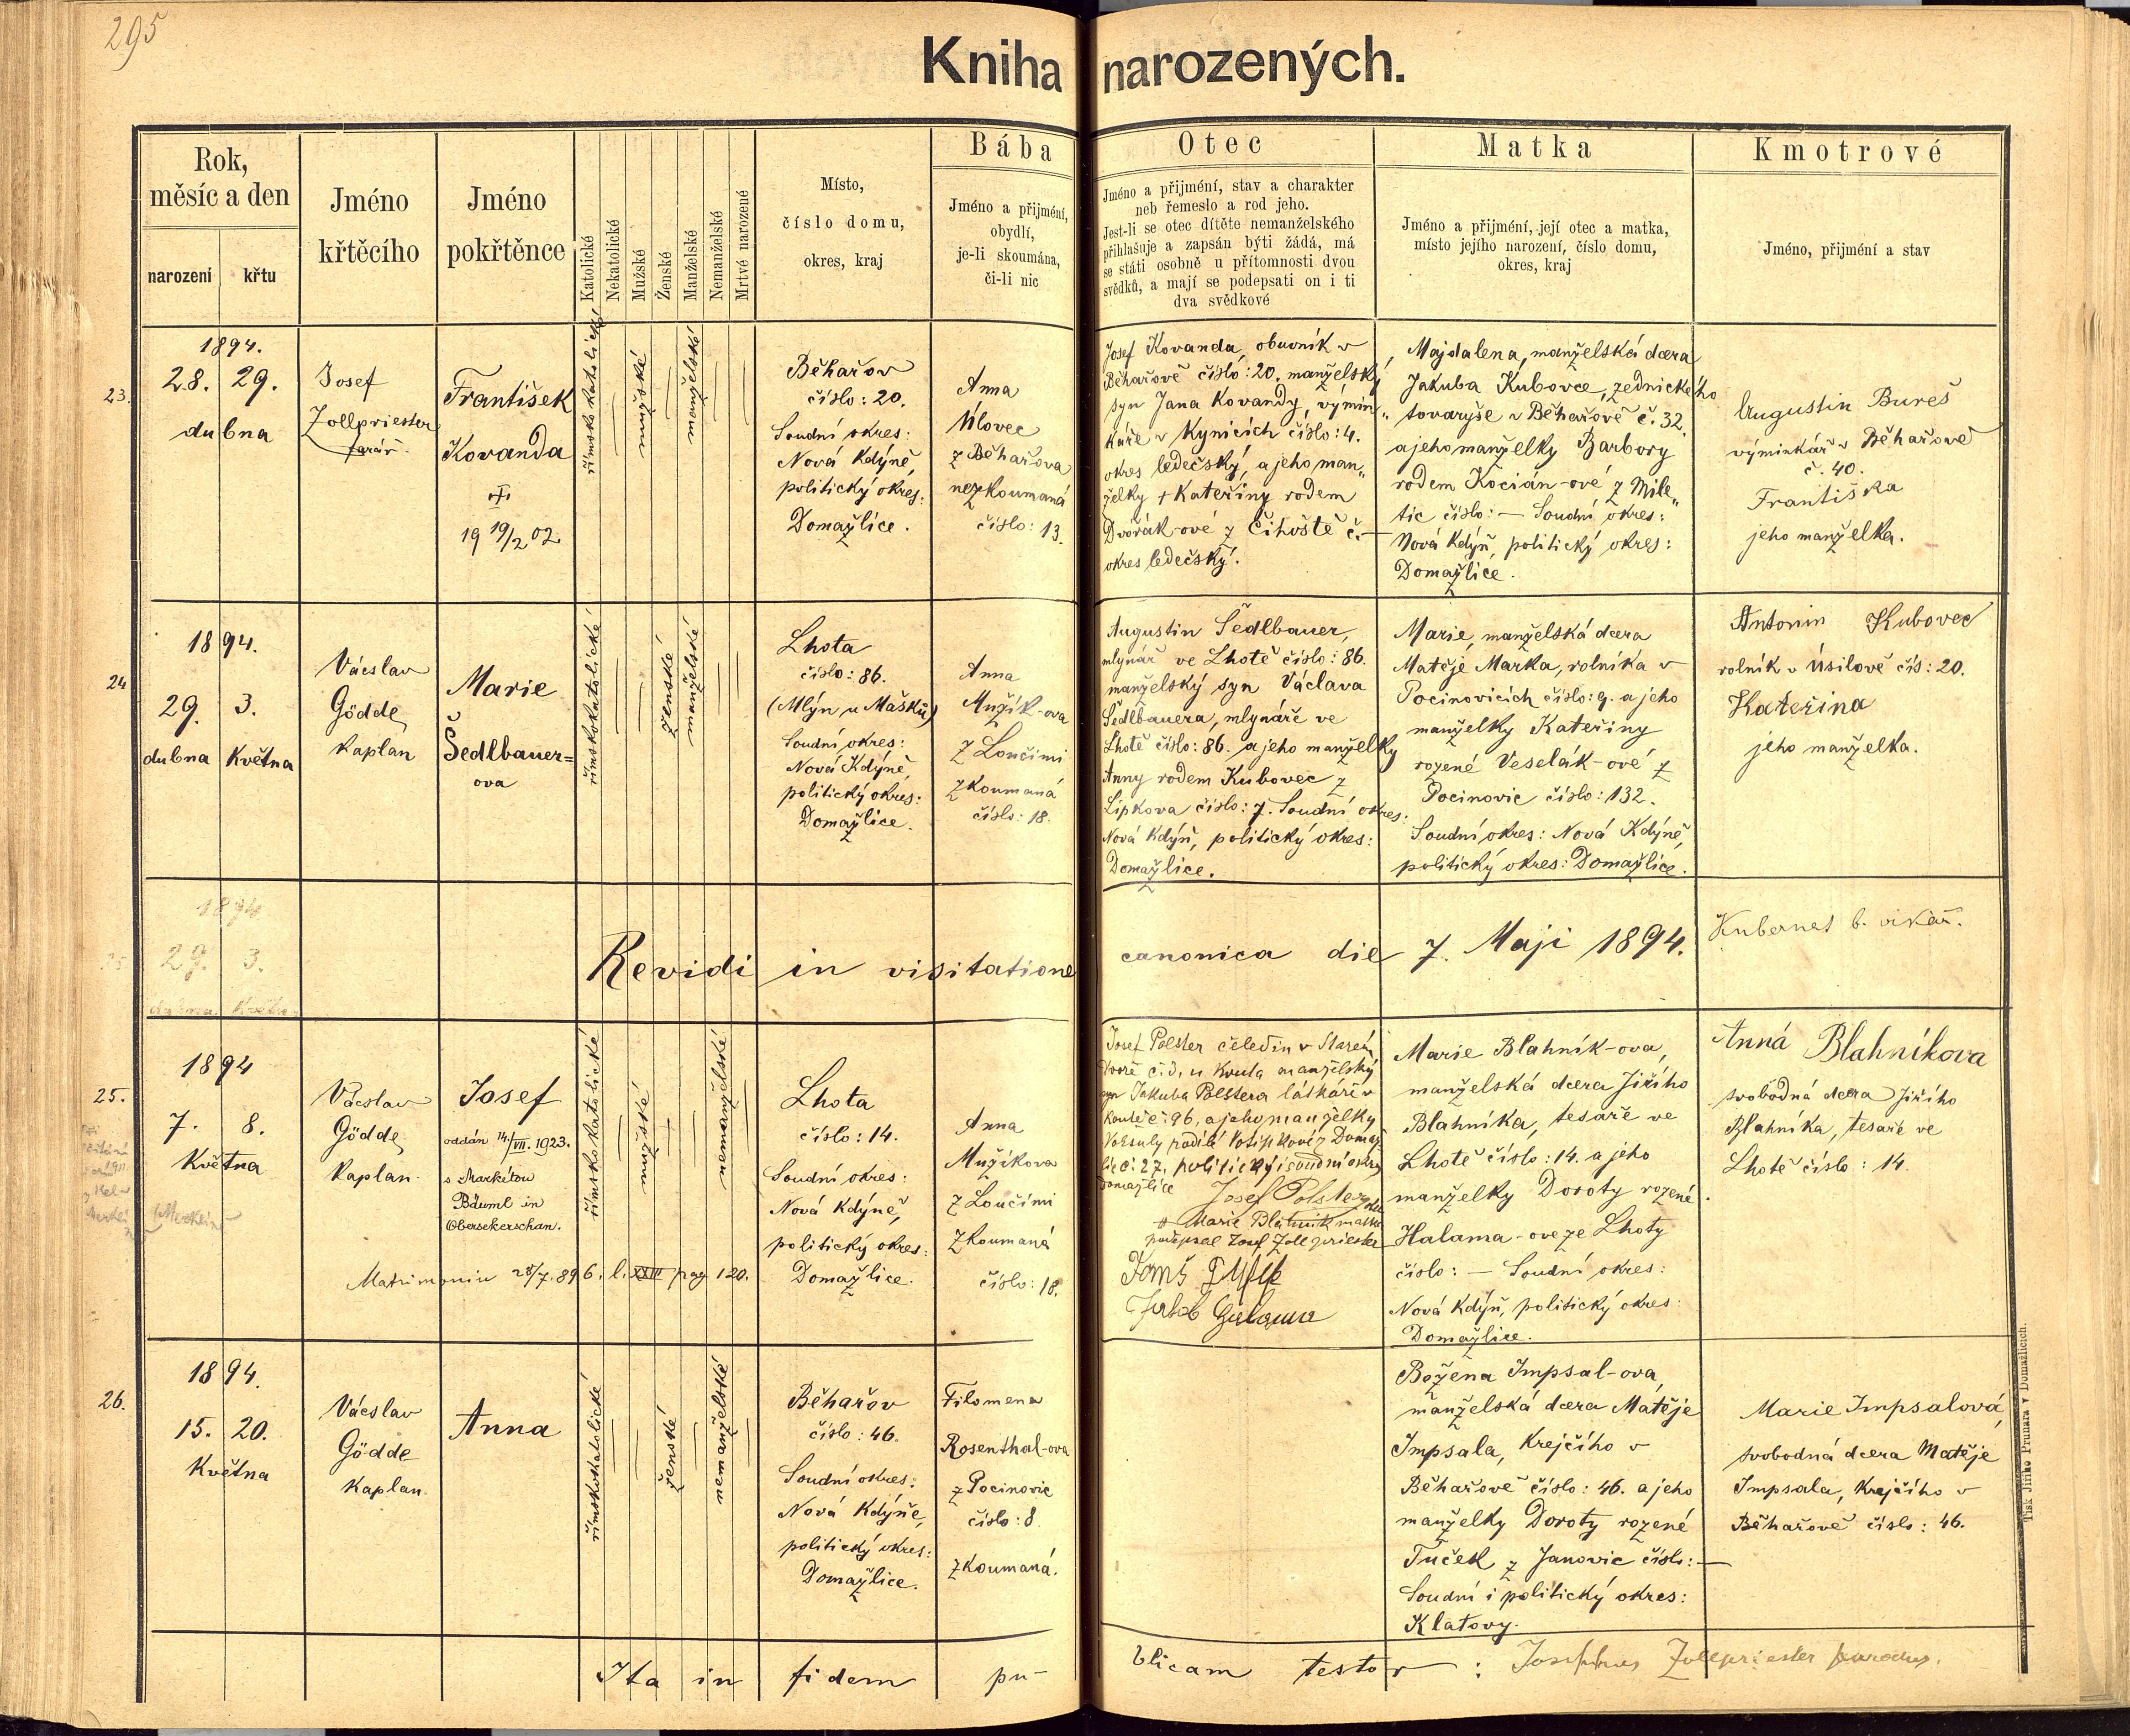 295
Kniha narozených.
Rok,
měsíc a den
narození křtu
Jméno
křtěcího
Jméno
pokřtěnce
Katolické
Nekatolické
Mužské
Ženské
Manželské
Nemanželské
Mrtvě narozené
Místo,
číslo domu,
okres, kraj
Bába
Jméno a přijmění,
obydlí,
je-li skoumána,
či-li nic
Otec
Jméno a přijmění, stav a charakter
neb řemeslo a rod jeho.
Jest-li se otec dítěte nemanželského
přihlašuje a zapsán býti žádá, má
se státi osobně u přítomnosti dvou
svědků, a mají se podepsati on i ti
dva svědkové
Matka
Jméno a přijmění, její otec a matka,
místo jejího narození, číslo domu,
okres, kraj
Kmotrové
Jméno, přijmění a stav
23.
1894.
28. 29.
dubna
Josef
Zollpriester
farář.
František
Kovanda
19 19/2 02
římskokatolické
mužské
manželské
Běhařov
číslo: 20.
Soudní okres:
Nová Kdýně,
politický okres:
Domažlice.
Anna
Úlovec
z Běhařova
nezkoumaná
číslo: 13.
Josef Kovanda, obuvník v
Běhařově číslo: 20. manželský
syn Jana Kovandy, výmin„
káře v Kynicích číslo: 4.
okres ledečský, a jeho man„
želky + Kateřiny rodem
Dvořák-ové z Čihoště č. —
okres ledečský.
Majdalena, manželská dcera
Jakuba Kubovce, zednického
tovaryše v Běhařově č. 32.
a jeho manželky Barbory
rodem Kocián-ové z Mile„
tic číslo: — Soudní okres:
Nová Kdýň, politický okres:
Domažlice.
Augustin Bureš
výminkář v Běhařově
č. 40.
Františka
jeho manželka.
24
1894.
29. 3.
dubna Května
Václav
Gödde
Kaplan
Marie
Šedlbauer=
ova
římskokatolické
ženské
manželské
Lhota
číslo: 86.
(Mlýn u Mašků)
Soudní okres:
Nová Kdýně,
politický okres:
Domažlice.
Anna
Mužík-ova
z Loučimi
zkoumaná
číslo: 18.
Augustin Šedlbauer,
mlynář ve Lhotě číslo: 86.
manželský syn Václava
Šedlbauera, mlynáře ve
Lhotě číslo: 86. a jeho manželky
Anny rodem Kubovec z
Lipkova číslo: 7. Soudní okres:
Nová Kdýň, politický okres:
Domažlice.
Marie, manželská dcera
Matěje Marka, rolníka v
Pocinovicích číslo: 9. a jeho
manželky Kateřiny
rozené Veselák-ové z
Pocinovic číslo: 132.
Soudní okres: Nová Kdýně,
politický okres: Domažlice.
Antonin Kubovec
rolník v Úsilově čís: 20.
Kateřina
jeho manželka.
1894
29. 3.
dubna Května
Revidi in visitatione canonica die 7. Maji 1894.
Kubernat b. vikář.
25.
1894
7. 8.
Května
Václav
Gödde
Kaplan.
Josef
oddán 14./VII. 1923.
s Markétou
Bäuml in
Obersekerschan.
Matrimoniu 28/7. 896. l. XXIII pag 120.
římskokatolické
mužské
nemanželské
Lhota
číslo: 14.
Soudní okres:
Nová Kdýně,
politický okres:
Domažlice.
Anna
Mužíkova
z Loučimi
zkoumaná
číslo: 18.
Josef Polster čeledín v Starém
Dvoře
manželský
syn Jakuba Polstera
Koutě č. 96, a jeho manželky
č. 27. politický i soudní okres
Domažlice
Josef Polster
Marie Blahnik matka
podepsal Josef Zollpriester
Marie Blahník-ova,
manželská dcera Jiřího
Blahníka, tesaře ve
Lhotě číslo: 14. a jeho
manželky Doroty rozené
Halama-ove ze Lhoty
číslo: — Soudní okres:
Nová Kdýň, politický okres:
Domažlice.
Anná Blahníkova
svobodná dcera Jiřího
Blahníka, tesaře ve
Lhotě číslo: 14.
26.
1894.
15. 20.
Května
Václav
Gödde
Kaplan.
Anna
římskokatolické
ženské
nemanželské
Běhařov
číslo: 46.
Soudní okres:
Nová Kdýně,
politický okres:
Domažlice.
Filomena
Rosenthal-ova
z Pocinovic
číslo: 8
zkoumaná.
Božena Impsal-ova,
manželská dcera Matěje
Impsala, Krejčího v
Běhařově číslo: 46. a jeho
manželky Doroty rozené
Tuček z Janovic číslo: —
Soudní i politický okres:
Klatovy.
Marie Impsalová,
svobodná dcera Matěje
Impsala, Krejčího v
Běhařově číslo: 46.
Ita in fidem pu- blicam testor: Josephus Zollpriester parochus.
Tisk Jiřího Prunara v Domažlicích.